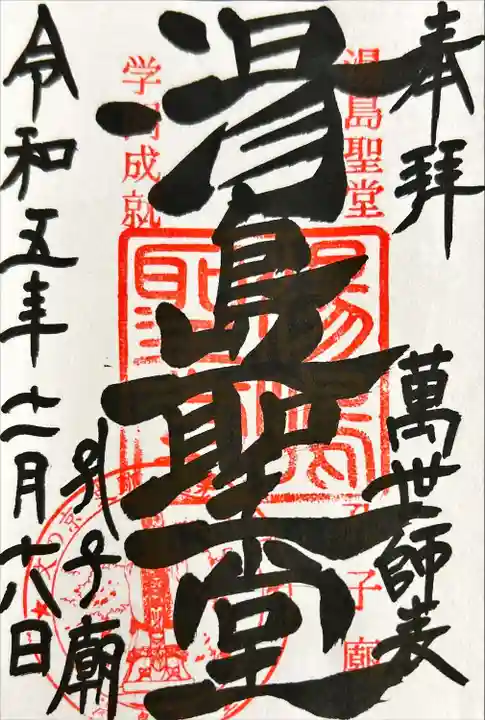 奉拝
萬世師表
湯島聖堂
孔子廟
湯島聖堂
学問成就
孔子廟
令和五年十一月六日